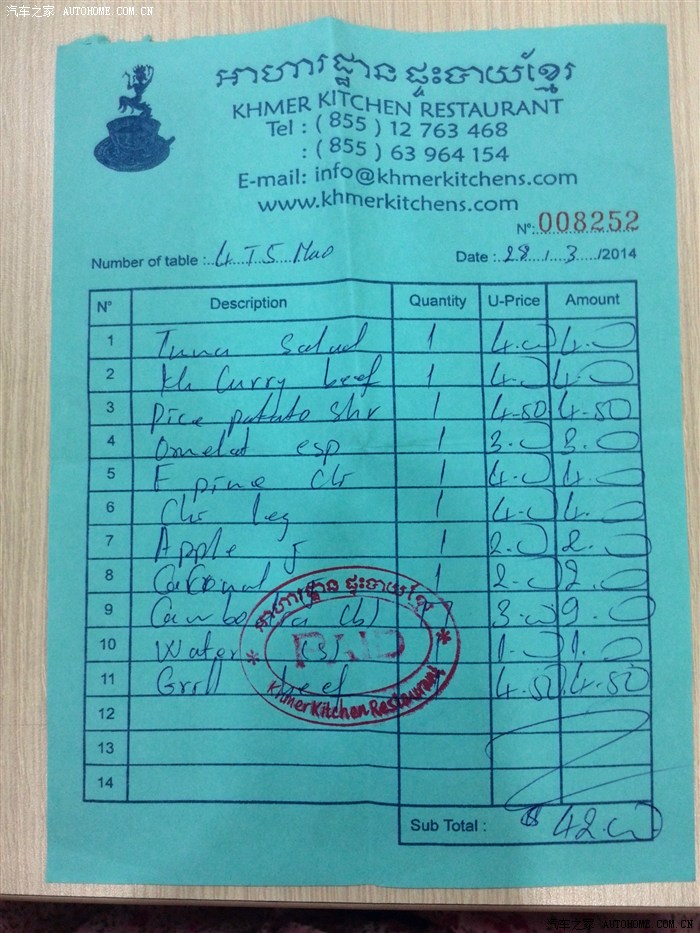 汽车之家 AUTOHOME.COM.CN
អាហារដ្ឋាន ផ្ទះបាយខ្មែរ
KHMER KITCHEN RESTAURANT
Tel : ( 855 ) 12 763 468
: ( 855 ) 63 964 154
E-mail: info@khmerkitchens.com
www.khmerkitchens.com
Nº: 008252
Number of table : 4 T 5 Mao Date : 28 / 3 /2014
N° Description Quantity U-Price Amount
1 Tuna Salad 1 4.00 4.0
2 Kh Curry beef 1 4.0 4.0
3 Pice potato Shr 1 4.50 4.50
4 Omelat esp 1 3.0 3.0
5 F pine Ch 1 4.0 4.0
6 Chi leg 1 4.0 4.0
7 Apple J 1 2.0 2.0
8 1 2.0 2.0
9 (b) 3.00 9.0
10 Water (3) 1.0 1.0
11 Grill beef 1 4.50 4.50
12
13
14
អាហារដ្ឋាន ផ្ទះបាយខ្មែរ
PAID
Khmer Kitchen Restaurant
Sub Total : $ 42.00
汽车之家 AUTOHOME.COM.CN